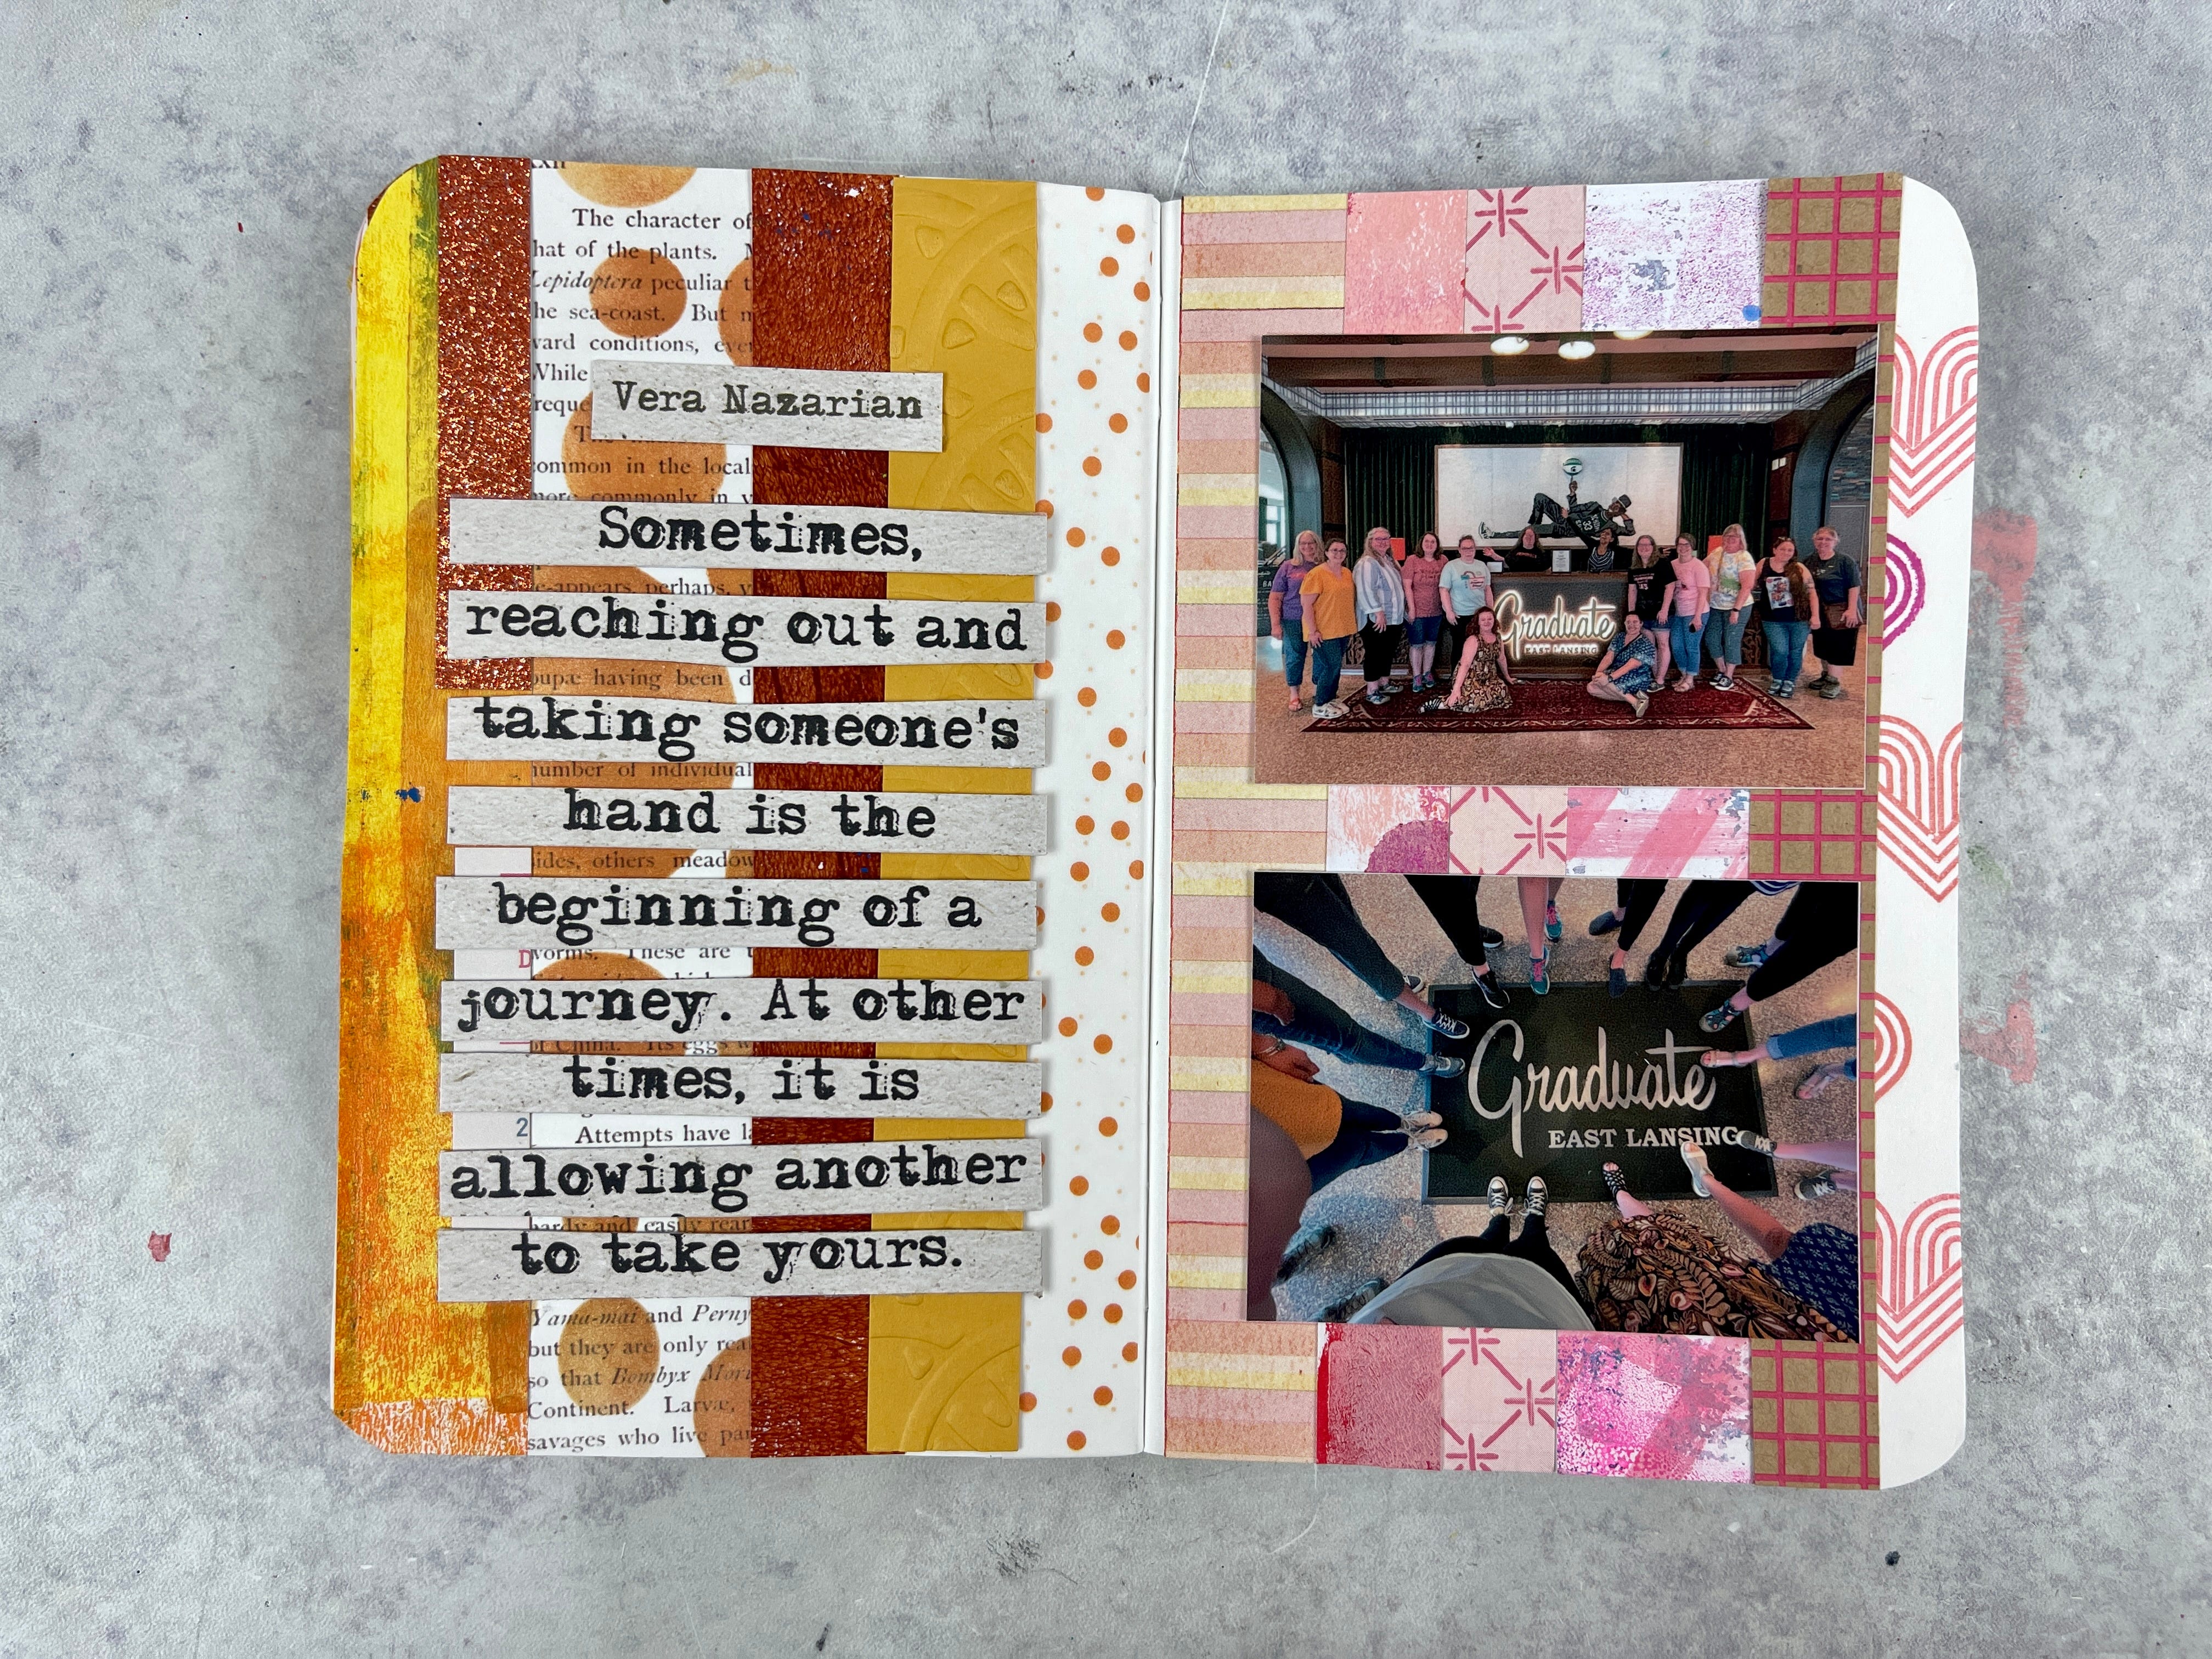 xxii
The character of
hat of the plants. M
Lepidoptera peculiar t
he sea-coast. But m
ward conditions, even
While
reque
Vera Nazarian
common in the local
more commonly in v
Sometimes,
appears, perhaps, v
reaching out and
pupæ having been d
taking someone's
number of individual
hand is the
sides, others meadow
beginning of a
D
worms. These are t
journey. At other
of China. Its eggs w
times, it is
2
Attempts have la
allowing another
hardy and easily rear
to take yours.
Yama-mai and Perny
but they are only rea
so that Bombyx Mori
Continent. Larvæ,
savages who live par
Graduate
EAST LANSING
Graduate
EAST LANSING